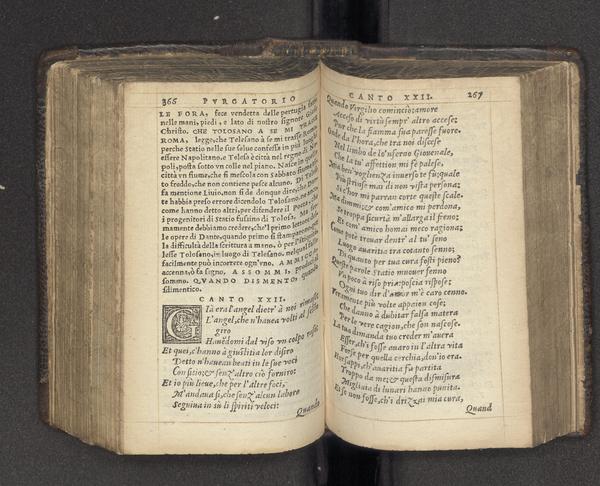 366 PVRGATORIO
LE FORA, fece vendetta delle pertugia fatte
nelle mani, piedi, e lato di nostro signore Giesu
Christo. CHE TOLOSANO A SE MI TRASSE
ROMA, legge, che Tolesano à se mi trasse Roma,
perche Statio nelle sue selue confessa in più luoghi
essere Napolitano. e Tolosa è città nel regno di Na
poli, posta sotto vn colle nel piano. Nasce in questa
città vn fiume, che si mescola con Sabbato fiume, mol
to freddo, che non contiene pesce alcuno. Di Tolosa
fa mentione Liuio, non si de donque dire, che Dan
te habbia preso errore dicendolo Tolosano, ne anco
come hanno detto altri, per difendere il Poeta, che
i progenitori di Statio fussino di Tolosa. Ma
mamente debbiamo credere, che'l primo lettore del
le opere di Dante, quando primo si stamparono, per
la difficultà della scrittura a mano, ò per l'
lesse Tolosano, in luogo di Tolesano, nel qual fallo
facilmente può incorrere ogn'vno. AMMICCA,
accennò, ò fa signo, ASSOMMI, produchi
sommo. QVANDO DISMENTO, quando
sidimentico.
CANTO XXII.
Già era l'angel dietr' à noi rimaso
L'angel, che n'hauea volti al sesto
giro
Hauendomi dal viso vn colpo raso:
Et quei, c'hanno à giustitia lor disiro
Detto n'hauean beati in le sue voci
Con sitio; & senz'altro ciò forniro:
Et io più lieue, che per l'altre foci,
M'andaua sì, che senz'alcun labore
Seguiua in sù li spiriti veloci:
Quando
CANTO XXII. 267
Quando Virgilio cominciò; amore
Acceso di virtù sempr' altro accese;
Pur che la fiamma sua paresse fuore.
Onde da l'hora, che tra noi discese
Nel limbo de lo'nferno Giouenale,
Che la tu' affettion mi fè palese,
Mia beniuoglienza inuerso te fù; quale
Più strinse mai di non vista persona;
Si c'hor mi parran corte queste scale.
Ma dimmi; & com'amico mi perdona,
Se troppa sicurtà m'allarga il freno;
Et com' amico homai meco ragiona;
Come potè trouar dentr' al tu' seno
Luogo auaritia tra cotanto senno;
Di quanto per tua cura fosti pieno?
Queste parole Statio mouer fenno
Vn poco à riso pria; poscia rispose;
Ogni tuo dir d'amor m'è caro cenno.
Veramente più volte appaion cose;
Che danno à dubitar falsa matera
Per le vere cagion, che son nascose.
La tua dimanda tuo creder m'auera
Esser, ch'i fosse auaro in l'altra vita
Forse per quella cerchia, dou'io era.
Hor sappi, ch'auaritia fù partita
Troppo da me; & questa dismisura
Migliaia di lunari hanno punita.
Et se non fosse, ch'i drizzai mia cura,
Quand